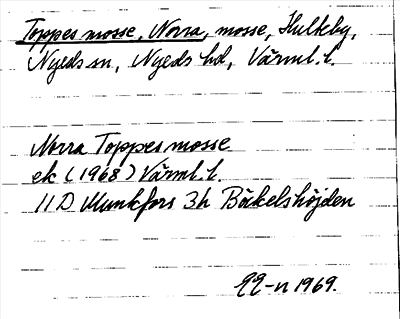 Toppes mosse, Norra, mosse, Hulteby,
Nyeds sn, Nyeds hd, Värml. l.
Norra Toppes mosse
ek (1968) Värml. l.
11 D Munkfors 3h Bäkelshöjden
EE-n 1969.